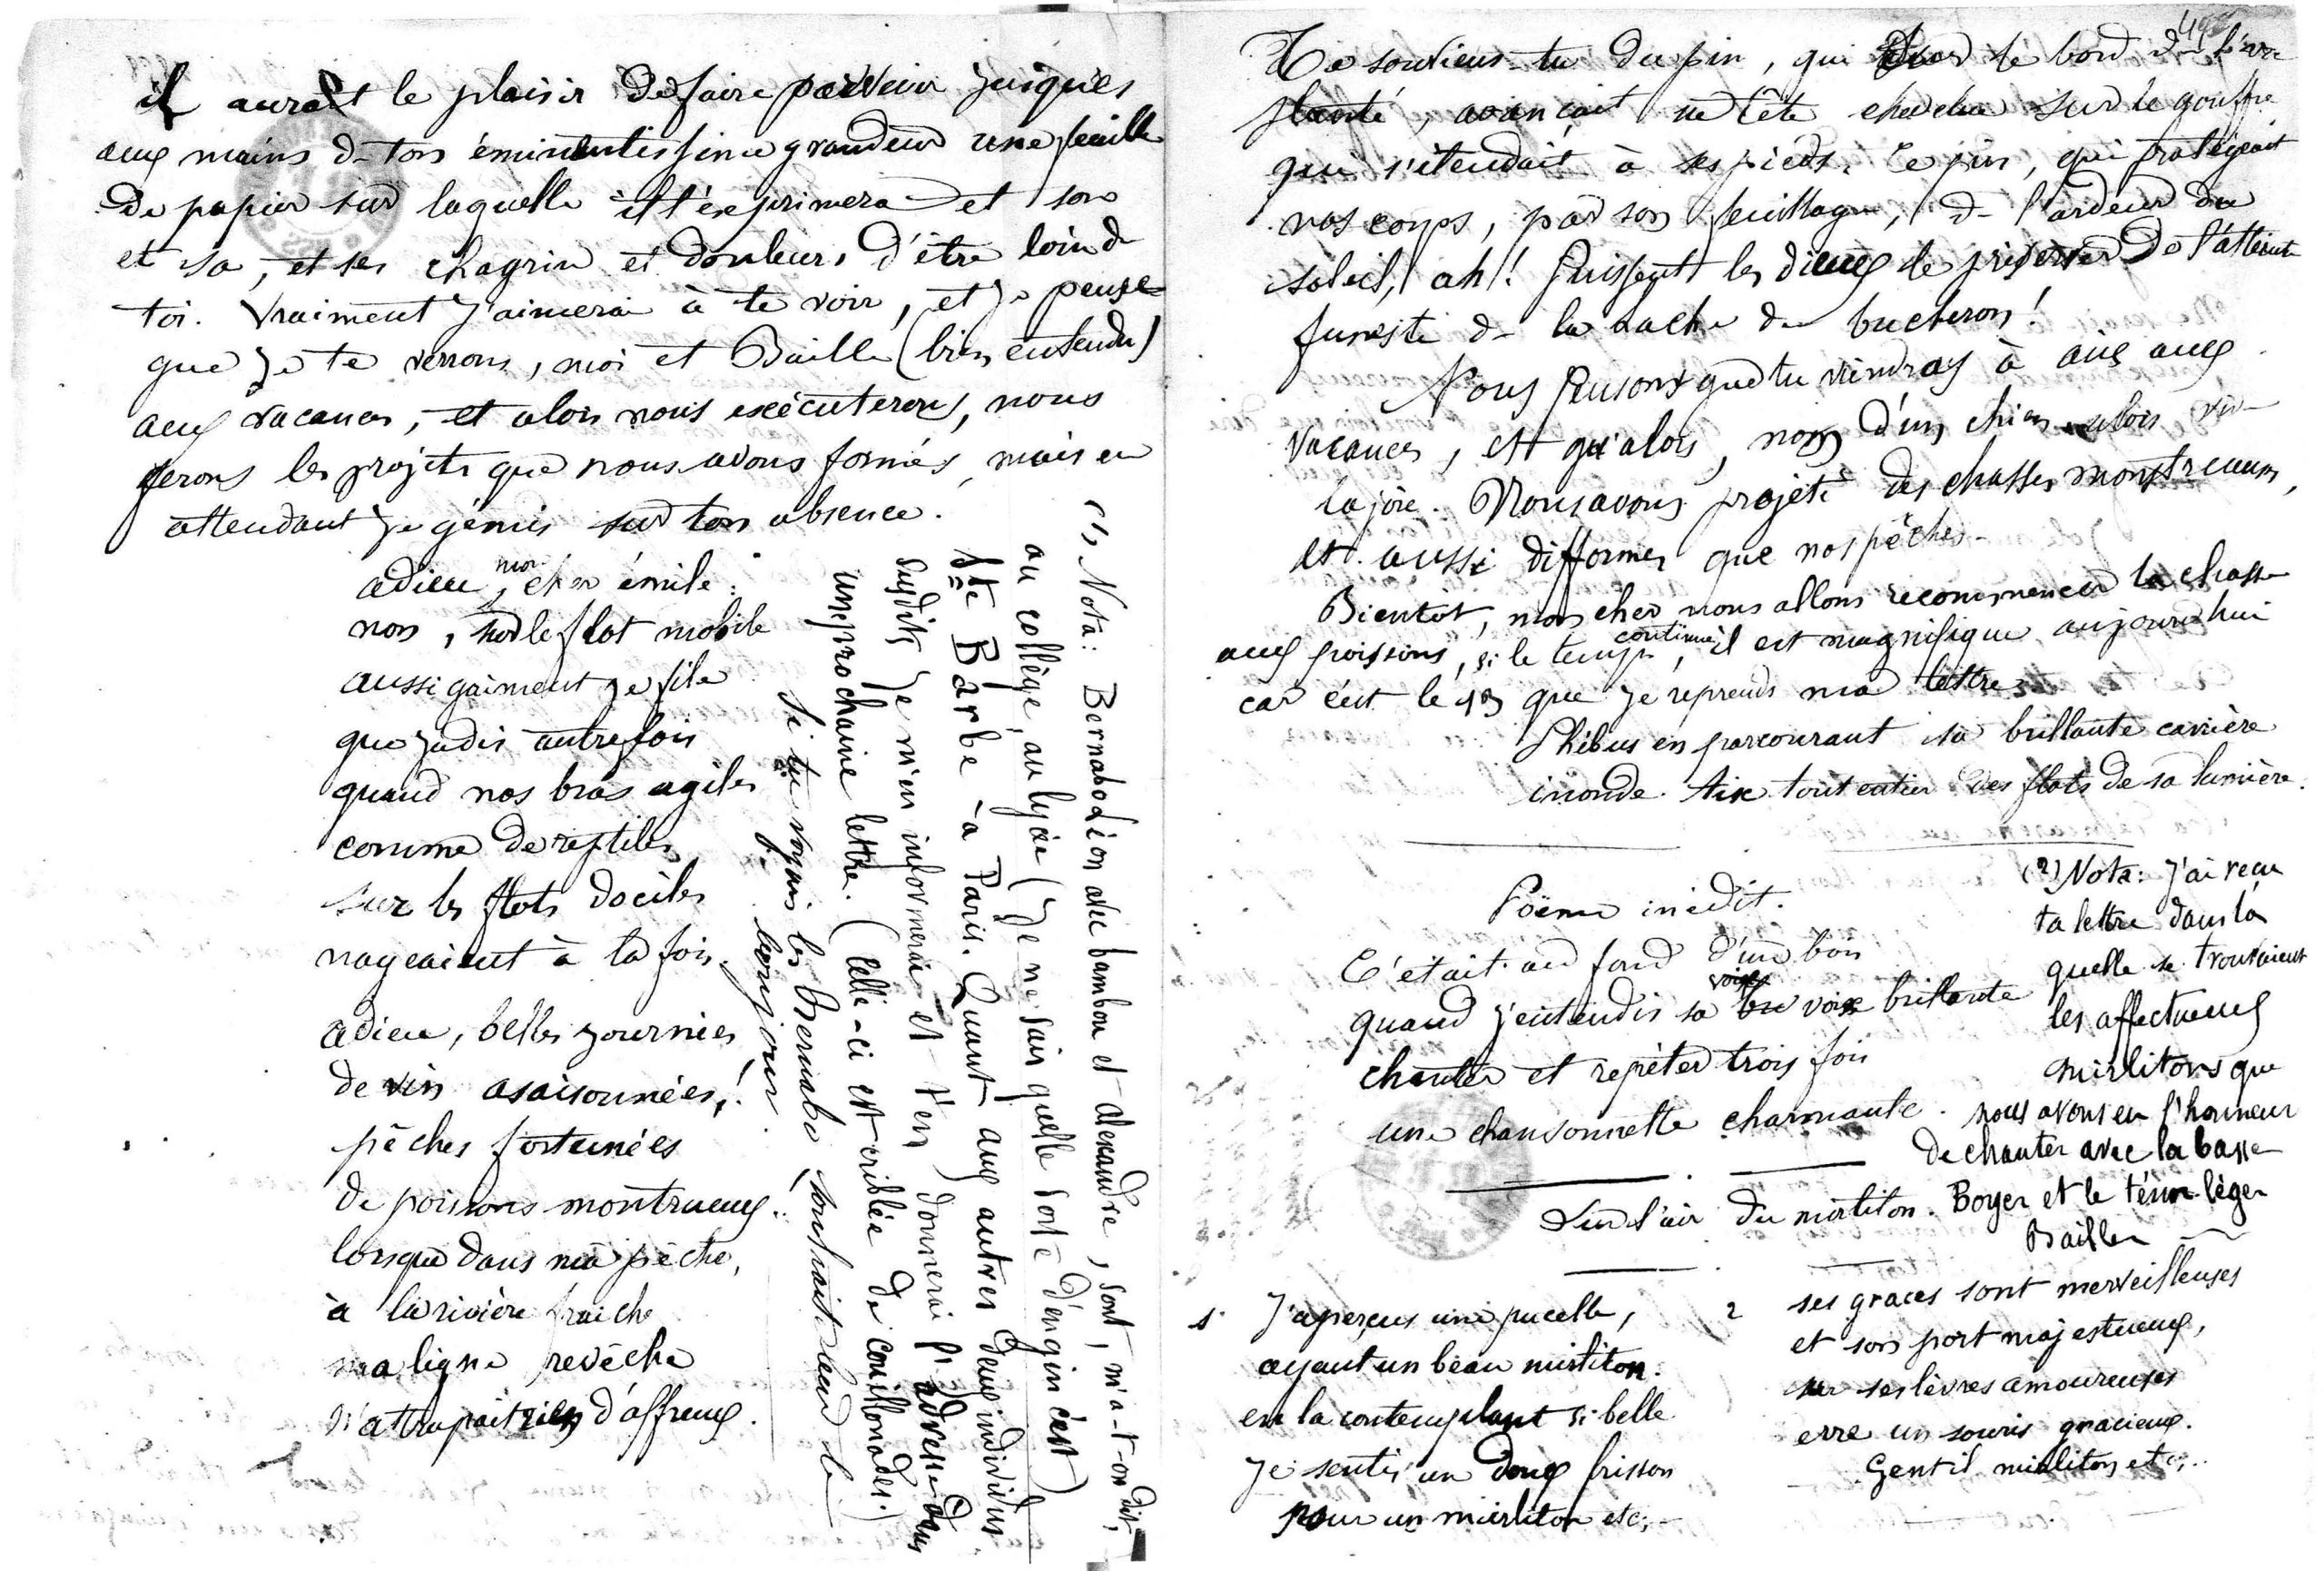 il aurait le plaisir de faire parvenir jusques
aux mains de ton éminentissime grandeur une feuille
de papier sur laquelle il t'exprimera et son
et sa, et ses chagrin et douleurs d'être loin de
toi. Vraiment j'aimerai à te voir, et je pense
que je te verrons, moi et Baille (bien entendu)
aux vacances, et alors nous exécuterons, nous
ferons les projets que nous avons formés, mais en
attendant je gémis sur ton absence.
adieu, mon cher émile:
non, sur le flot mobile
aussi gaiment je file
que jadis autrefois
quand nos bras agiles
comme de reptiles
sur les flots dociles
nageaient à la fois.
adieu, belles journées
de vin asaisonnées!
pêches fortunées
de poissons montrueux.
lorsque dans ma pêche,
à la rivière fraiche
ma ligne revêche
n'attrapait rien d'affreux.
(1) Nota: Bernabo, Léon dit bambou et alexandre, sont, m'a-t-on dit,
au collège, au lycée (je ne sais quelle sorte d'engin c'est)
Ste Barbe à Paris. Quant aux autres deux individus
susdits je m'en informerai et t'en donnerai l'adresse dans
une prochaine lettre. (Celle-ci est criblée de couillonades.)
Si tu voyais les Bernabo, souhait leur le
bonjour.
Te souviens-tu du pin, qui sur le bord de l'arc
planté, avançait sa tête chevelue sur le gouffre
qui s'étendait à ses pieds. Ce pin, qui protégeait
nos corps, par son feuillage, de l'ardeur du
soleil, ah! Puissent les dieux le préserver de l'atteinte
funeste de la hache du bucheron!
Nous pensons que tu viendras à aix aux
vacances, et qu'alors, nom d'un chien, alors vive
la joie. Nous avons projeté des chasses monstreuses,
et aussi difformes que nos pêches.
Bientôt, mon cher nous allons recommencer la chasse
aux poissons, si le temps continue, il est magnifique aujourd'hui
car c'est le que je reprends ma lettre.
Phébus en parcourant sa brillante carrière
inonde Aix tout entier des flots de sa lumière.
Poëme inédit.
C'était au fond d'un bois
quand j'entendis sa voix brillante
chanter et repéter trois fois
une chansonnette charmante.
Sur l'air du mirliton.
(2) Nota: J'ai reçu
ta lettre dans la
quelle se trouvaient
les affectueux
mirlitons que
nous avons eu l'honneur
de chanter avec la basse
Boyer et le ténor léger
Baille
1 J'aperçus une pucelle,
ayant un beau mirliton.
en la contemplant si belle
je sentis un doux frisson
pour un mirliton etc.
2 ses graces sont merveilleuses
et son port majestueux,
sur ses lèvres amoureuses
erre un souris gracieux.
Gentil mirliton etc.